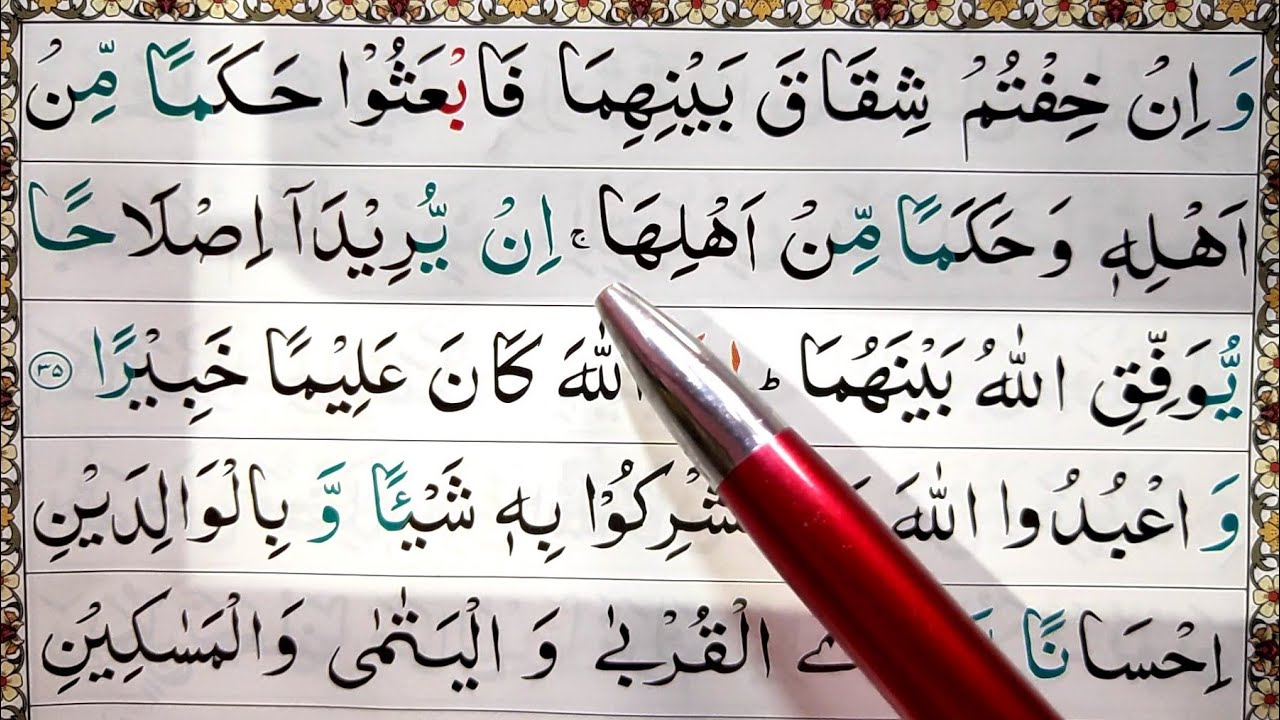 وَ اِنْ خِفْتُمْ شِقَاقَ بَيْنِهِمَا فَابْعَثُوْا حَكَمًا مِّنْ
اَهْلِهٖ وَ حَكَمًا مِّنْ اَهْلِهَا ۚ اِنْ يُّرِيْدَآ اِصْلَاحًا
يُّوَفِّقِ اللّٰهُ بَيْنَهُمَا ؕ اللّٰهَ كَانَ عَلِيْمًا خَبِيْرًا ۝۳۵
وَ اعْبُدُوا اللّٰهَ بِهٖ شَيْـًٔا وَّ بِالْوَالِدَيْنِ
اِحْسَانًا الْقُرْبٰى وَ الْيَتٰمٰى وَالْمَسٰكِيْنِ